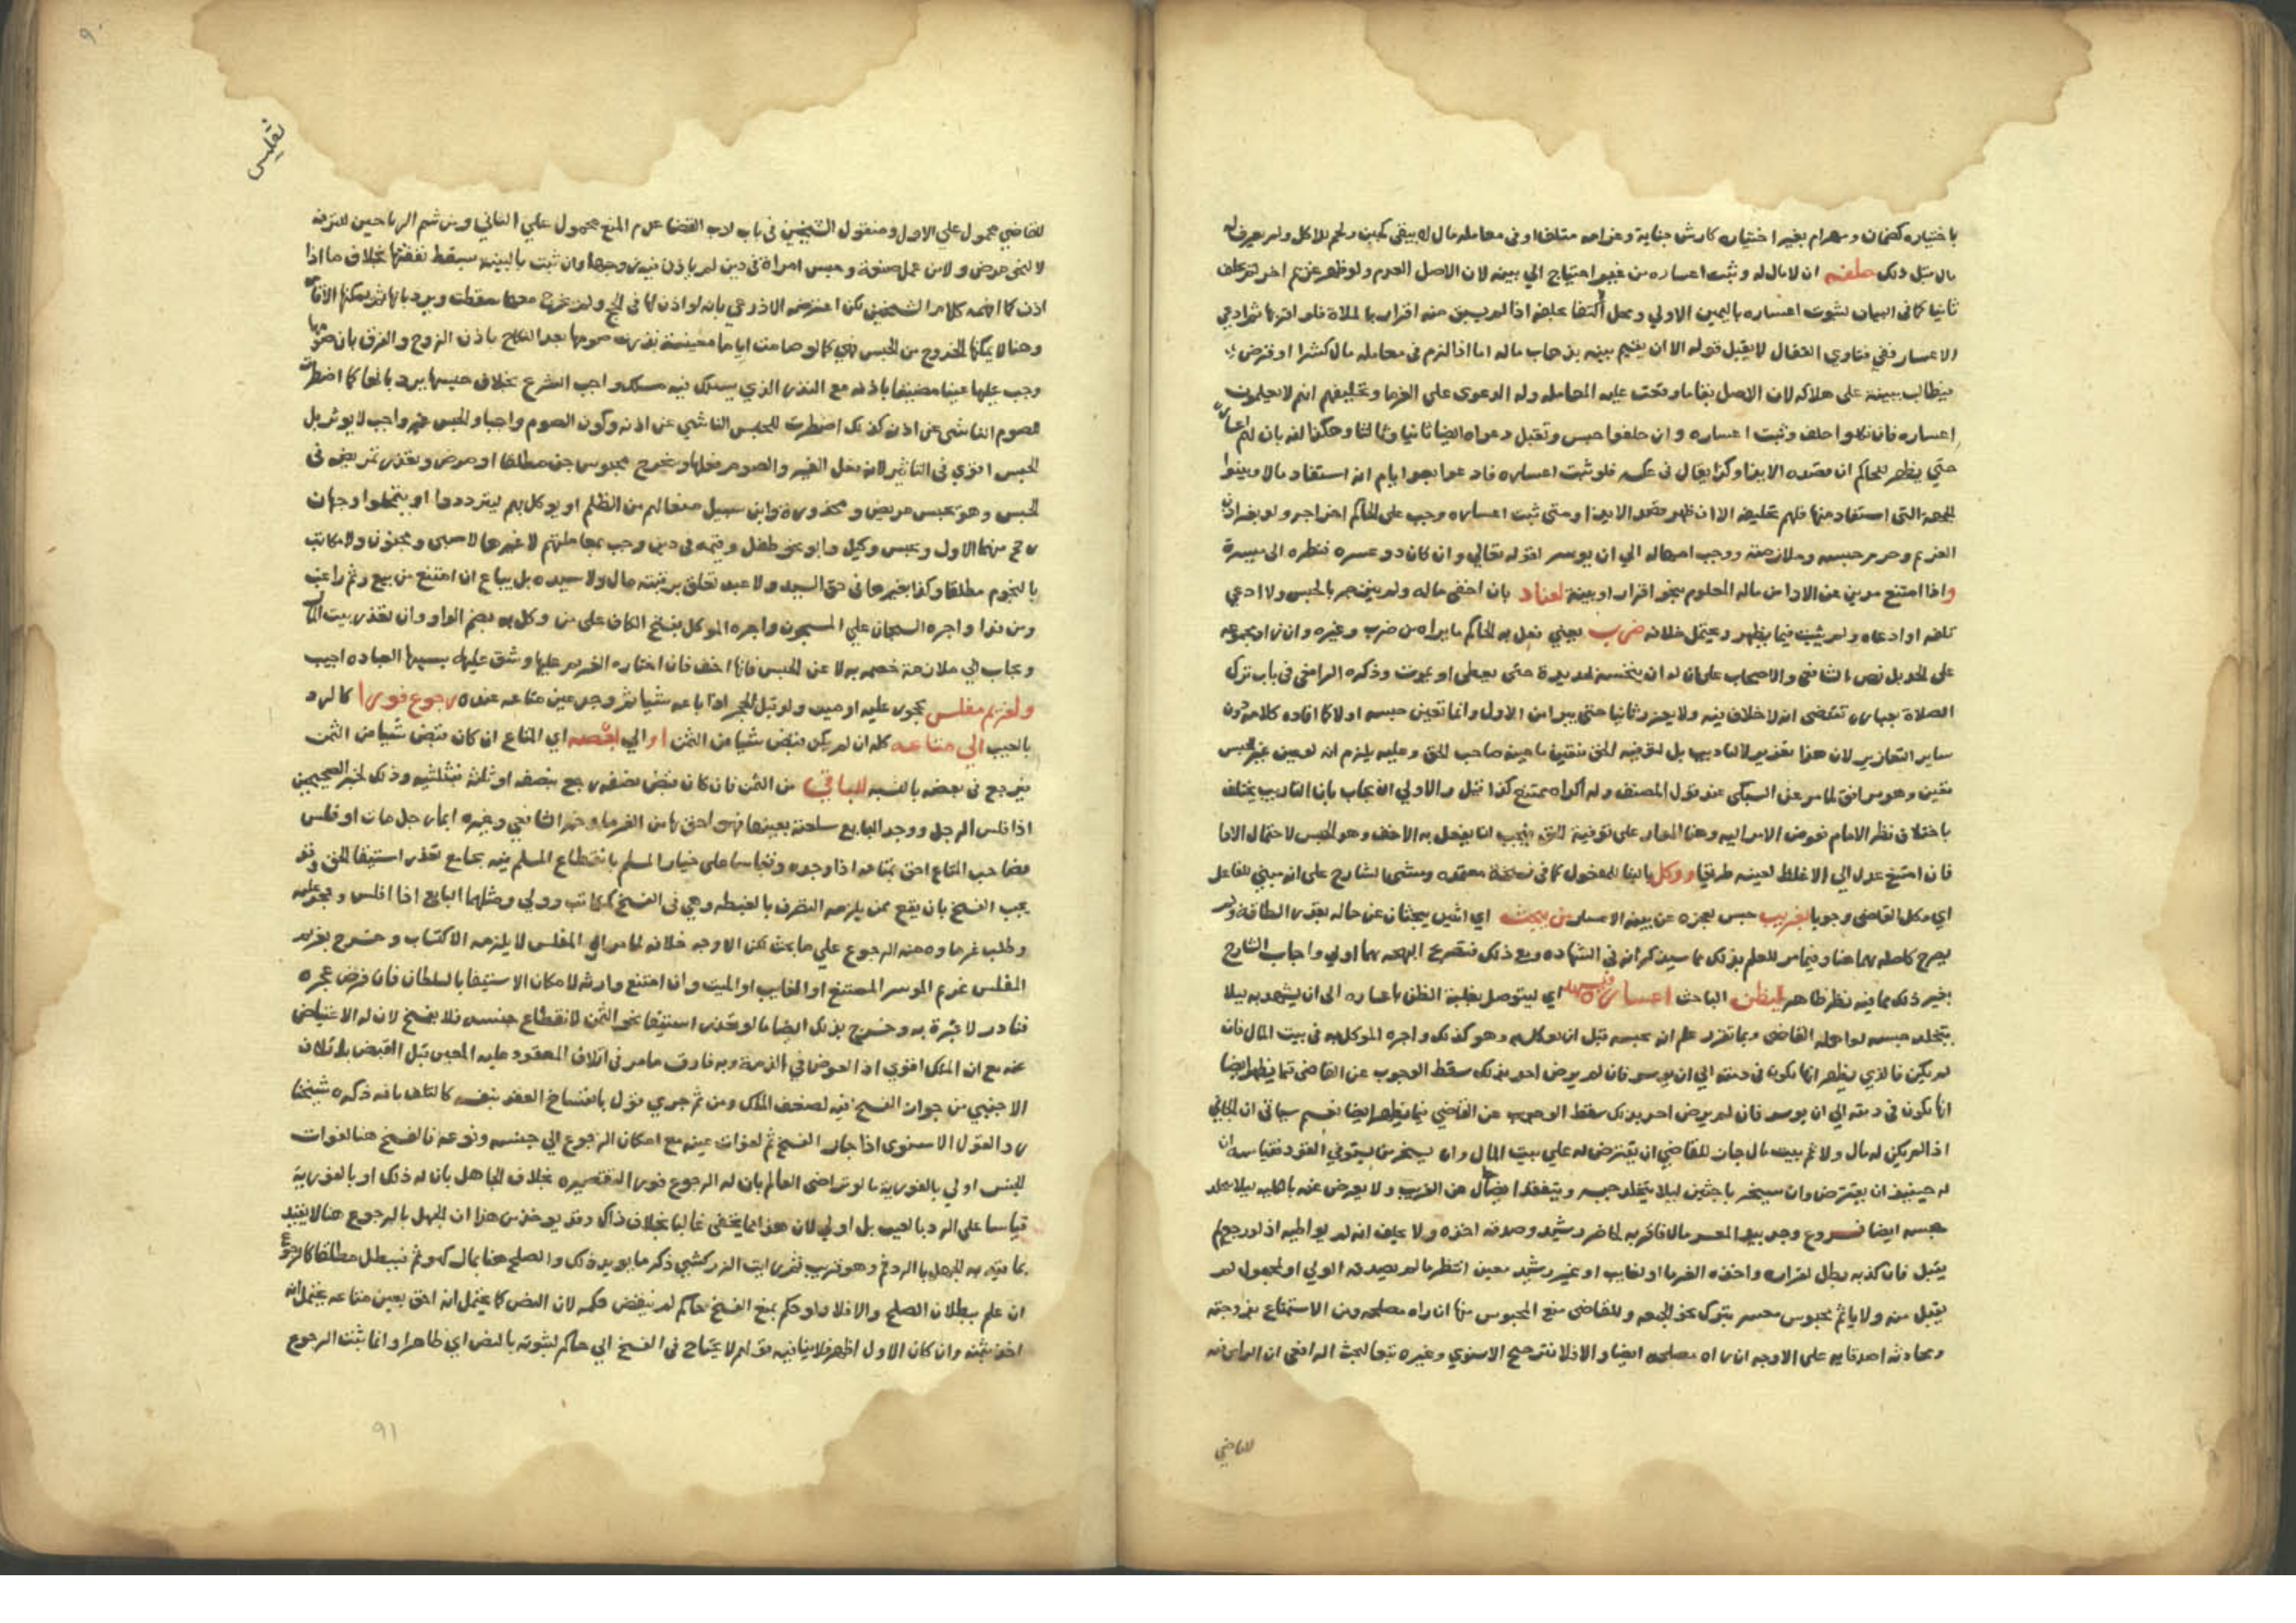 باختياره كضمان ومهرام بغير اختياره كارش جناية وغرامه متلف او في معامله مال لا يبقى كخبز ولحم للاكل ولم يعرف له
مال مثل ذلك حلفه ان لا مال له وثبت اعساره من غير احتياج الي بينه لان الاصل العدم ولو ظهر غريم اخر لم يحلف
ثانيا كما في البيان لثبوت اعساره باليمين الاولي ومحل اكتفا بحلفه اذا لم يسبق منه اقرار بالملاة فلو اقر بها ثم ادعي
الاعسار ففي فتاوي القفال لا يقبل قوله الا ان يقيم بينه بذهاب ماله اما اذا لزم في معامله مال كشرا او قرض
فيطالب ببينة على هلاكه لان الاصل بقا ما وقعت عليه المعامله وله الدعوى على الغرما وتحليفهم انهم لا يعلمون
اعساره فان نكلوا حلف وثبت اعساره وان حلفوا حبس وتقبل دعواه ايضا ثانيا وثالثا وهكذا
حتي يظهر للحاكم ان قصده الايذا وكذا يقال في عكسه فلو ثبت اعساره فادعوا بعد ايام انه استفاد مالا وبينوا
الجهة التي استفاد منها فلهم تحليفه الا ان ظهر قصد الايذا ومتى ثبت اعساره وجب على الحاكم اخراجه ولو بغير اذن
الغريم وحرم حبسه وملازمته ووجب امهاله الي ان يوسر لقوله تعالي وان كان ذو عسرة فنظرة الى ميسرة
واذا امتنع مدين عن الادا من ماله المعلوم بنحو اقرار او بينة لعناد بان اخفى ماله ولم ينزجر بالحبس ولا ادعي
تلفه او ادعاه ولم يثبت فيما يظهر ويحتمل خلافه ضرب يعني فعل به الحاكم ما يراه من ضرب وغيره وان زاد مجموعه
على الحد بل نص الشافعي والاصحاب على ان له ان يحبسه حتى يعطى او يموت وذكره الرافعي في باب ترك
الصلاة بعبارة تقتضى انه لا خلاف فيه ولا يعزر ثانيا حتى يبرا من الاول وانما تعين حبسه اولا كما افاده كلامه دون
ساير التعازير لان هذا تعزير لا لتاديب بل لتوفية الحق فتعين ما عينه صاحب الحق وعليه يلزم انه لو عين غير الحبس
تعين وهو موافق لما مر عن السبكي عند قول المصنف وله اكراه ممتنع كذا قيل والاولي ان يجاب بان التاديب يختلف
باختلاف نظر الامام فوض الامر اليه وهنا المدار على توفية الحق فيجب ان يفعل به الاخف وهو الحبس لاحتمال الادا
فان امتنع عدل الي الاغلظ لتعينه طريقا ووكل بالبنا للمفعول كما في نسخة معتمده ومشى الشارح على انه مبني للفاعل
اي وكل القاضي وجوبا بغريب حبس لعجزه عن بينه الاعسار من يبحث اي اثنين يبحثان عن حاله بقدر الطاقه ولم
يصرح كاصله بهما هنا وفيما مر للعلم بذلك مما سيذكرانه في الشهاده ومع ذلك فتصريح البهجه بهما اولي واجاب الشارح
بغير ذلك بما فيه نظر ظاهر ليظن الباحث اعساره فيشهد به اي ليتوصل بغلبة الظن باعساره الى ان يشهد به ليلا
يتخلد حبسه لو اهمله القاضي وبما تقرر علم انه يحبسه قبل ان يوكل به وهو كذلك واجره الموكل به في بيت المال فان
لم يكن فالذي يظهر انها تكون في ذمته الي ان يوسر فان لم يرض احد بذلك سقط الوجوب عن القاضي فيما يظهر ايضا
انها تكون في ذمته الي ان يوسر فان لم يرض احد بذلك سقط الوجوب عن القاضي فيما يظهر ايضا نعم سياتي ان الجاني
اذا لم يكن له مال ولا ثم بيت مال جاز للقاضي ان يقترض له علي بيت المال وان يسخر من يستوفي القود فقياسه ان
له حينيذ ان يقترض وان يسخر باحثين ليلا يتخلد حبسه ويتفقدا حال من القريب ولا يعرض عنه باهماله ليلا يتخلد
حبسه ايضا فروع وجد بيد المعسر مالا فاقر به لحاضر رشيد وصدقه اخذه ولا يحلف انه لم يواطيه اذ لو رجع لم
يقبل فان كذبه بطل اقراره واخذه الغرما او لغايب او غير رشيد معين انتظر ما لم يصدقه الولي او لمجهول لم
يقبل منه ولا ياثم محبوس معسر بترك نحو الجمعه وللقاضي منع المحبوس منها ان راه مصلحه ومن الاستمتاع بزوجته
ومحادثة اصدقايه على الاوجه ان راه مصلحه ايضا والا فلا فترجيح الاسنوي وغيره تبعا لبحث الرافعي ان الراى فيه
للقاضي
تفليس
للقاضي محمول علي الاول ومنقول الشيخين في باب ادب القضا عدم المنع محمول علي الثاني ومن شم الرياحين للترفه
لا لنحو مرض ولا من عمل صنعة وحبس امراة في دين لم ياذن فيه زوجها وان ثبت بالبينه يسقط نفقتها بخلاف ما اذا
اذن كما افهمه كلام الشيخين لكن اعترضه الاذرعي بانه لو اذن لها في الحج ولم يخرج معها سقطت ويرد بانها ثم يمكنها الاقامة
وهنا لا يمكنها الخروج من الحبس فهي كما لو صامت اياما معينة بنذرت صومها بعد النكاح باذن الزوج والفرق بان صومها
وجب عليها عينا مضيقا باذنه مع النذر الذي يسلك فيه مسلك واجب الشرع بخلاف حبسها يرد بانها كما اضطرت
للصوم الناشى عن اذن كذلك اضطرت للحبس الناشي عن اذنه وكون الصوم واجبا والحبس غير واجب لا يوثر بل
الحبس اقوي في التاثير لانه فعل الغير والصوم فعلها ويخرج محبوس جن مطلقا او مرض وتعذر تمريضه في
الحبس وهو يحبس مريض ومخدورة وابن سبيل منعا لهم من الظلم او يوكل بهم ليترددوا او يتمحلوا وجهان
رجح منهما الاول ويحبس وكيل وابو نحو طفل وقيمه في دين وجب بمعاملتهم لا غيرها لا صبي ومجنون ولا مكاتب
بالنجوم مطلقا وكذا بغيرها في حق السيد ولا عبد تعلق برقبته مال ولا سيده بل يباع ان امتنع من بيع وثم راغب
ومن فدا واجره السجان علي المسجون واجره الموكل بفتح الكاف على من وكل به بضم الواو وان تعذر بيت المال
ويجاب الي ملازمة خصمه بدلا عن الحبس فانها اخف فان اختاره الغريم عليها وشق عليه بسببها العباده اجيب
ولغريم مفلس محجور عليه او ميت ولو قبل الحجر اذا باعه شيا ثم وجد عين متاعه عنده رجوع فورا كالرد
بالعيب الى متاعه كله ان لم يكن قبض شيا من الثمن او الي بعضه اي المتاع ان كان قبض شيا من الثمن
فيرجع في بعضه بالنسبه للباقي من الثمن فان كان قبض نصفه رجع بنصفه او ثلثه فبثلثيه وذلك لخبر الصحيحين
اذا فلس الرجل ووجد البايع سلعته بعينها فهو احق بها من الغرما وخبر الشافعي وغيره ايما رجل مات او فلس
فصاحب المتاع احق بمتاعه اذا وجده وقياسا على خيار المسلم بانقطاع المسلم فيه بجامع تعذر استيفا الحق وقد
يجب الفسخ بان يقع ممن يلزمه التصرف بالغبطه وهي في الفسخ كمكاتب وولي ومثلهما البايع اذا افلس وحجر عليه
وطلب غرماوه منه الرجوع علي ما بحث لكن الاوجه خلافه لما مر ان المفلس لا يلزمه الاكتساب وخرج بغريم
المفلس غريم الموسر الممتنع او الغايب او الميت وان امتنع وارثه لامكان الاستيفا بالسلطان فان فرض عجزه
فنادر لا عبرة به وخرج بذلك ايضا ما لو تعذر استيفا نحو الثمن لانقطاع جنسه فلا يفسخ لان له الاعتياض
عنه مع ان الملك اقوي اذ العوض في الذمة وبه فارق ما مر في اتلاف المعقود عليه المعين قبل القبض باتلاف
الاجنبي من جواز الفسخ فيه لضعف الملك ومن ثم جري قول بانفساخ العقد بنفسه كالتلف بافه ذكره شيخنا
رد القول الاسنوى اذا جاز الفسخ ثم لفوات عينه مع امكان الرجوع الي جنسه ونوعه فالفسخ هنا لفوات
الجنس اولي بالفورية ما لو تراضى العالم بان له الرجوع فورا لتقصيره بخلاف الجاهل بان له ذلك او بالفورية
قياسا على الرد بالعيب بل اولي لان هذا مما يخفى غالبا بخلاف ذاك وقد يوخذ من هذا ان الجهل بالرجوع هنا لا يتقيد
بما قيد به الجهل بالرد ثم وهو قريب ثم رايت الزركشي ذكر ما يويد ذلك والصلح هنا بمال كهو ثم فيبطل مطلقا كالرجوع
ان علم ببطلان الصلح والا فلا ولو حكم بمنع الفسخ حاكم لم ينقض حكمه لان النص كما يحتمل انه احق بعين متاعه يحتمل انه
احق بثمنه وان كان الاول اظهر فلا ينافيه قولهم لا يحتاج في الفسخ الي حاكم لثبوته بالنص اي ظاهرا وانما ثبت الرجوع
٩٠
91